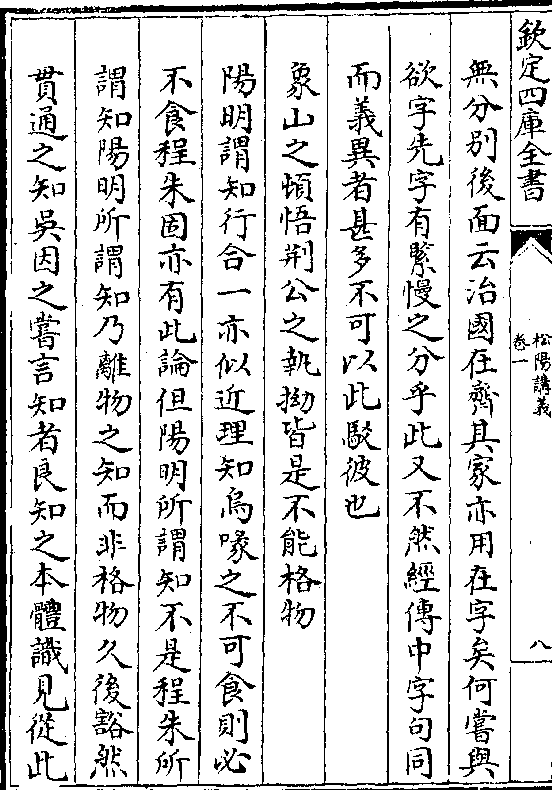 欽定四庫全書
松陽講義
卷一
八
無分別後面云治國在齊其家亦用在字矣何嘗與
欲字先字有緊慢之分乎此又不然經傳中字句同
而義異者甚多不可以此駁彼也
象山之頓悟荆公之執拗皆是不能格物
陽明謂知行合一亦似近理知烏喙之不可食則必
不食程朱固亦有此論但陽明所謂知不是程朱所
謂知陽明所謂知乃離物之知而非格物久後豁然
貫通之知吳因之嘗言知者良知之本體識見從此